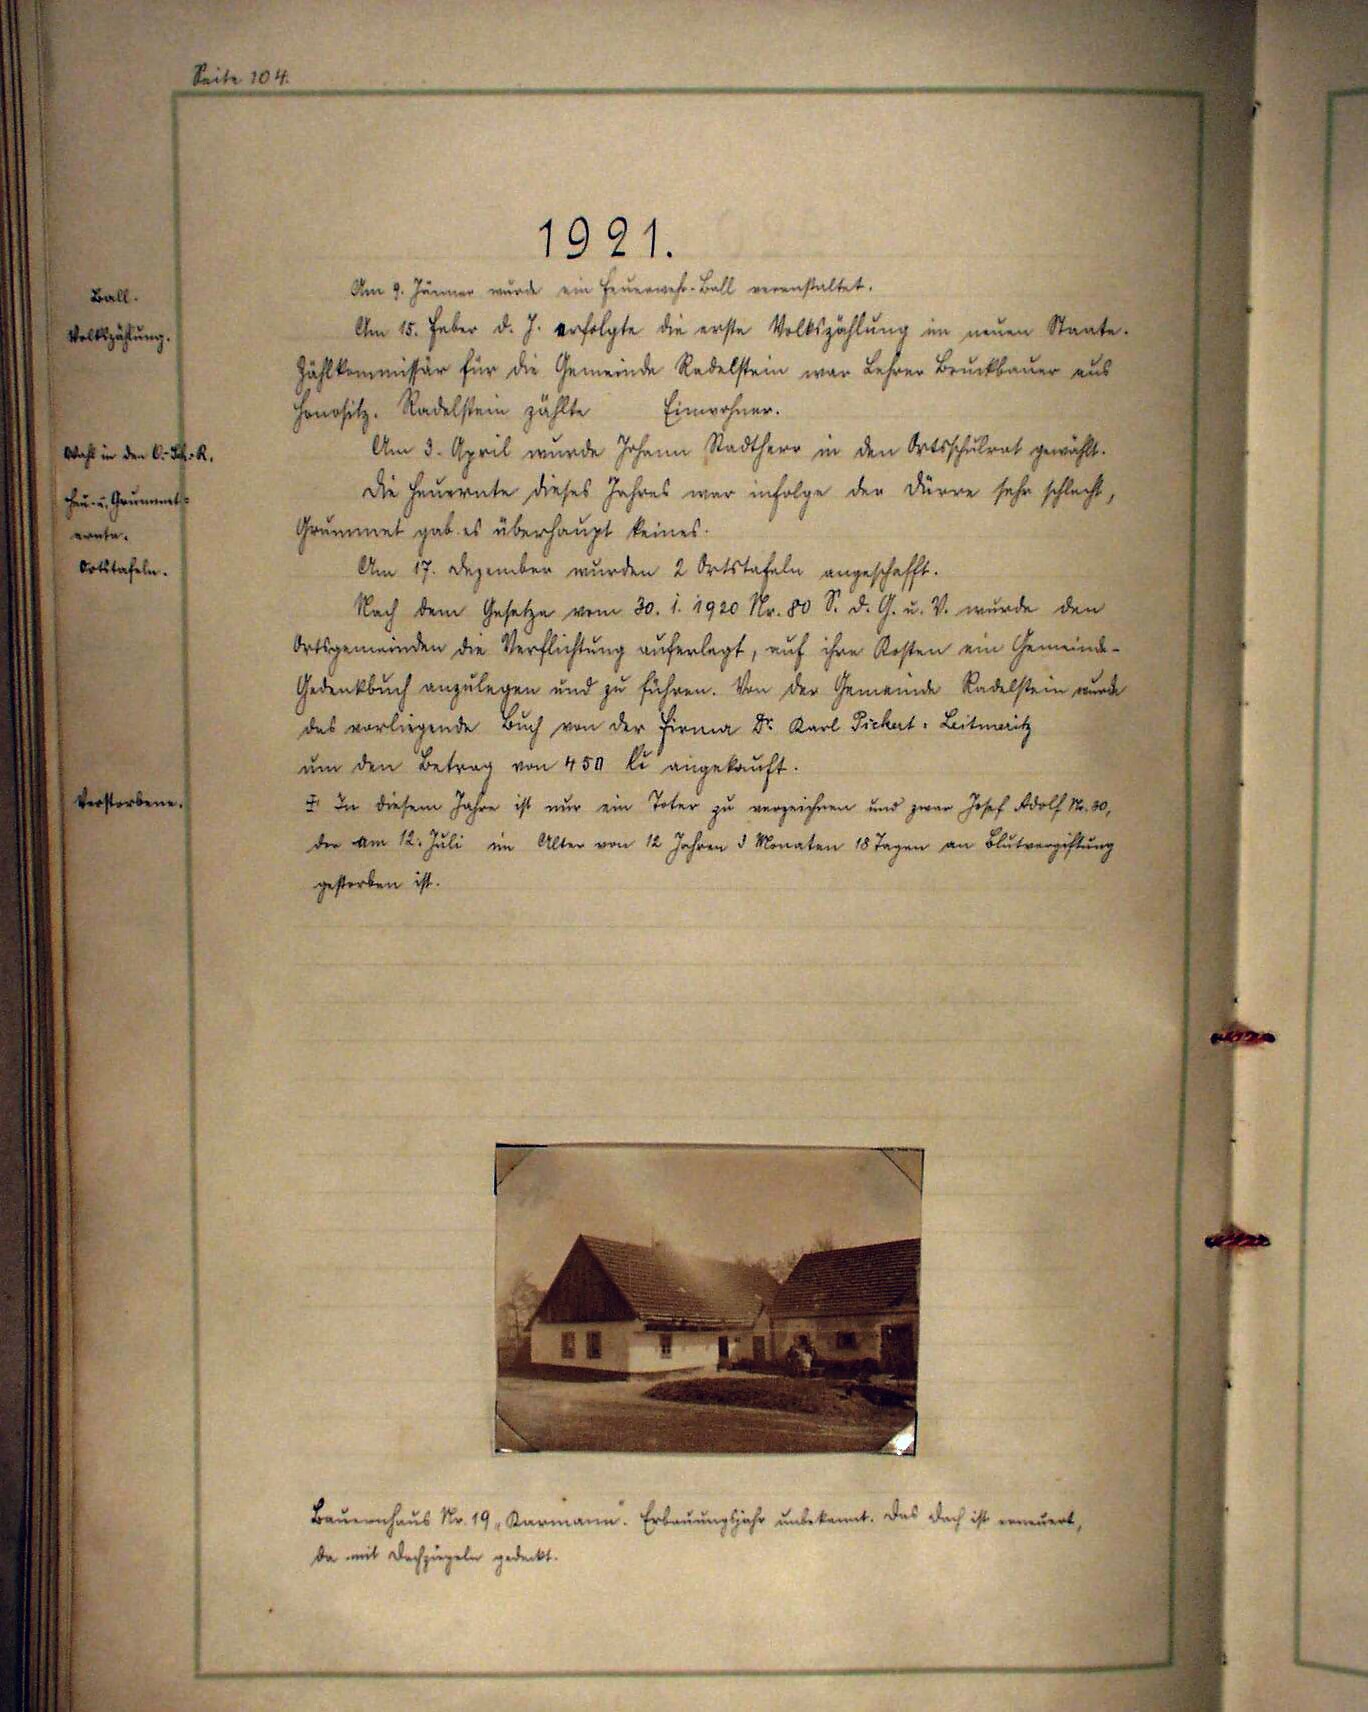 Seite 104.
1921.
Ball.
Am 9. Jänner wurde ein Feuerwehr-Ball veranstaltet.
Volkszählung.
Am 15. Feber d. J. erfolgte die erste Volkszählung im neuen Staate.
Zählkommissär für die Gemeinde Radelstein war Lehrer Bruckbauer aus
Honositz. Radelstein zählte Einwohner.
Wahl in den O.-Sch.-R.
Am 3. April wurde Johann Stadtherr in den Ortsschulrat gewählt.
Heu- u. Grummet-
ernte.
Die Heuernte dieses Jahres war infolge der Dürre sehr schlecht,
Grummet gab es überhaupt keines.
Ortstafeln.
Am 17. Dezember wurden 2 Ortstafeln angeschafft.
Nach dem Gesetze vom 30. 1. 1920 Nr. 80 S. d. G. u. V. wurde den
Ortsgemeinden die Verflichtung auferlegt, auf ihre Kosten ein Gemeinde-
Gedenkbuch anzulegen und zu führen. Von der Gemeinde Radelstein wurde
das vorliegende Buch von der Firma Dr. Karl Pickert - Leitmeritz
um den Betrag von 450 Kč angekauft.
Verstorbene.
In diesem Jahre ist nur ein Toter zu verzeichnen und zwar Josef Adolf Nr. 30,
der am 12. Juli im Alter von 12 Jahren 3 Monaten 18 Tagen an Blutvergiftung
gestorben ist.
Bauernhaus Nr. 19 „Karmann". Erbauungsjahr unbekannt. Das Dach ist erneuert,
da mit Dachziegeln gedeckt.